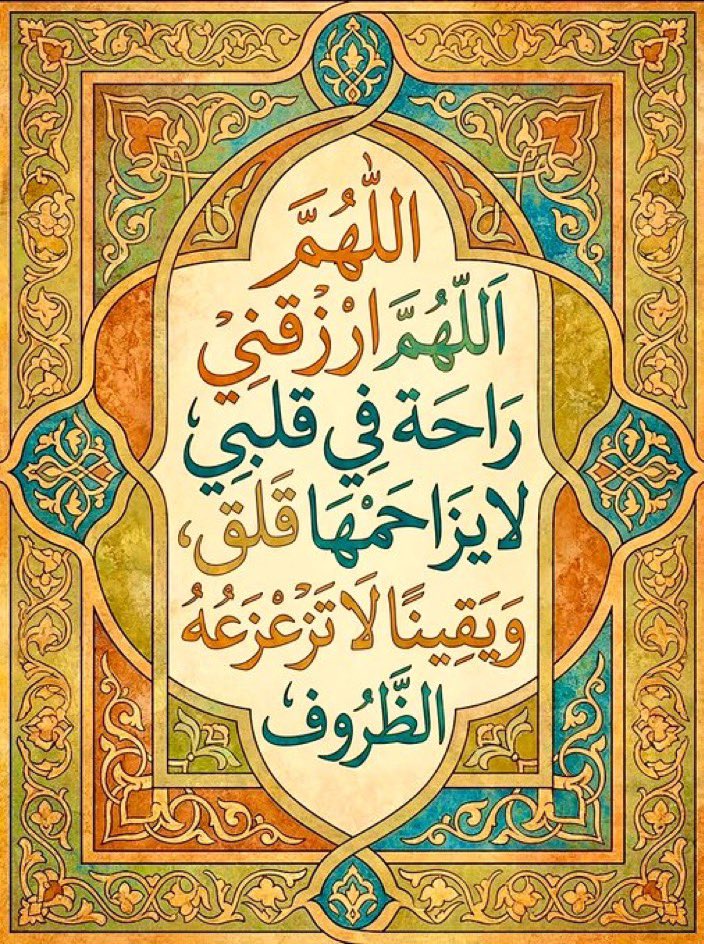 اللّٰهُمَّ
اَللّٰهُمَّ ارْزُقْنِيْ
رَاحَة فِي قلبِي،
لا يَزَاحَمْهَا قَلَق،
وَيَقِينًا لَا تَزَعْزَعُهُ
الظَّرُوف،